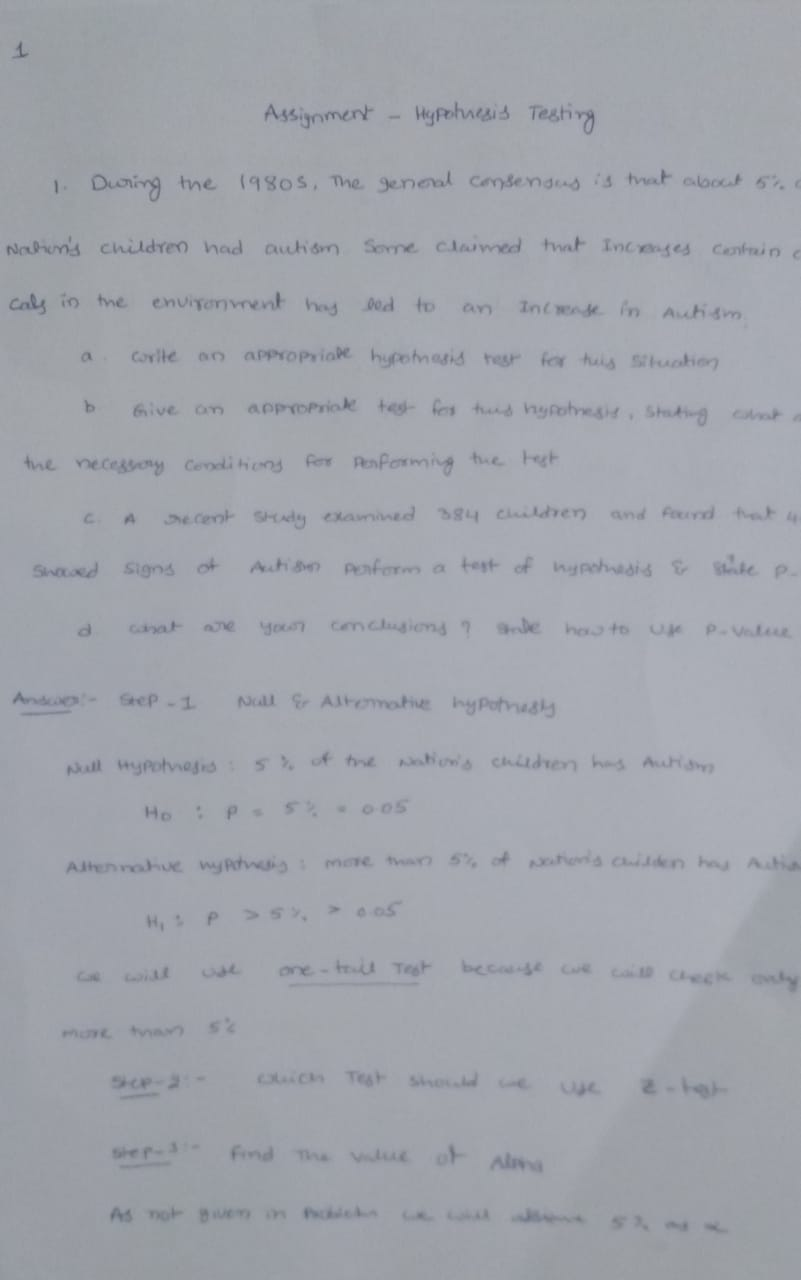 1
Assignment - Hypothesis Testing
1. During the 1980s, The general consensus is that about 5%
Nation's children had autism. Some claimed that Increases certain
cals in the environment has led to an Increase in Autism.
a. write an appropriate hypothesis test for this situation
b. Give an appropriate test for this hypothesis, stating what
the necessary conditions for performing the test
c. A recent study examined 384 children and found that 4
showed signs of Autism perform a test of hypothesis & state P-
d. what are your conclusions? state how to use P-value
Answer:- Step-1 Null & Alternative hypothesis
Null Hypothesis : 5% of the Nation's children has Autism
Ho : P = 5% = 0.05
Alternative hypothesis : more than 5% of Nation's children has
H1 : P > 5% > 0.05
we will use one-tail Test because we will check only
more than 5%
Step-2:- which Test should we use Z-test
Step-3:- Find The value of Alpha
As not given in Problem we will assume 5% as α